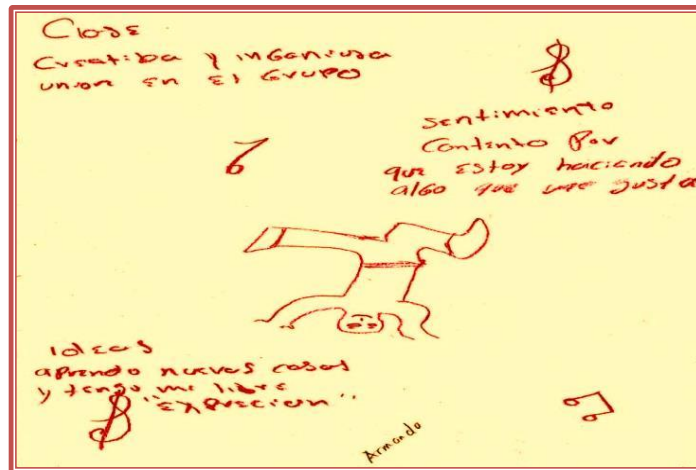 Clase
Creatiba y ingeniosa
union en el Grupo
sentimiento
Contento Por
que estoy haciendo
algo que me gusta
ideas
aprendo nuevas cosas
y tengo mi libre
"exprecion"
Armando